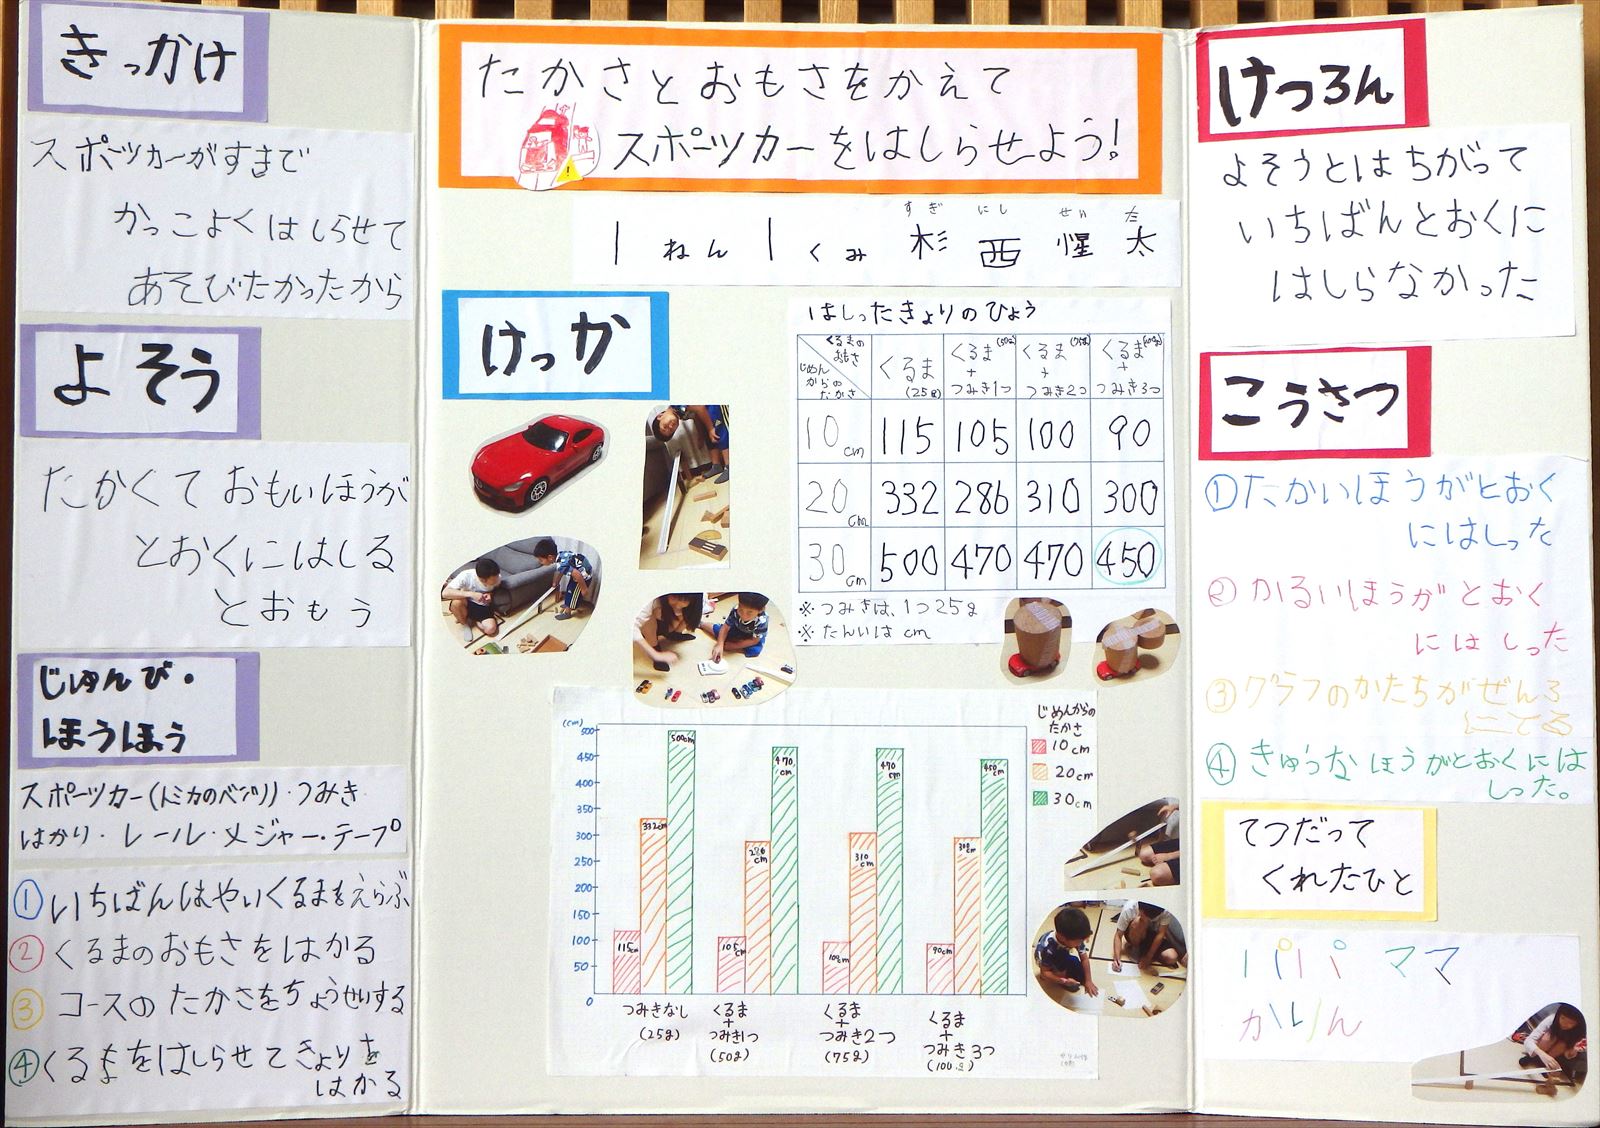 きっかけ
スポーツカーがすきで
かっこよくはしらせて
あそびたかったから
よそう
たかくて おもいほうが
とおくにはしる
とおもう
じゅんび・
ほうほう
スポーツカー(トミカのベンツ)・つみき
はかり・レール・メジャー・テープ
①いちばんはやいくるまをえらぶ
②くるまのおもさをはかる
③コースのたかさをちょうせいする
④くるまをはしらせてきょりを
はかる
たかさとおもさをかえて
スポーツカーをはしらせよう!
すぎ にし せい た
1ねん1くみ 杉西惺太
けっか
はしったきょりのひょう
くるまの
おもさ
じめん
からの
たかさ
くるま
(25g)
くるま(50g)
+
つみき1つ
くるま(75g)
+
つみき2つ
くるま(100g)
+
つみき3つ
10cm 115 105 100 90
20cm 332 286 310 300
30cm 500 470 470 450
※つみきは、1つ25g
※たんいはcm
(cm)
500
450
400
350
300
250
200
150
100
50
0
115cm
332cm
500cm
105cm
470cm
100cm
310cm
470cm
90cm
300cm
450cm
つみきなし
(25g)
くるま
+
つみき1つ
(50g)
くるま
+
つみき2つ
(75g)
くるま
+
つみき3つ
(100g)
じめんからの
たかさ
10cm
20cm
30cm
けつろん
よそうとはちがって
いちばんとおくに
はしらなかった
こうさつ
①たかいほうがとおく
にはしった
②かるいほうがとおく
にはしった
③グラフのかたちがぜんぶ
にてる
④きゅうなほうがとおくには
しった。
てつだって
くれたひと
パパ ママ
かりん